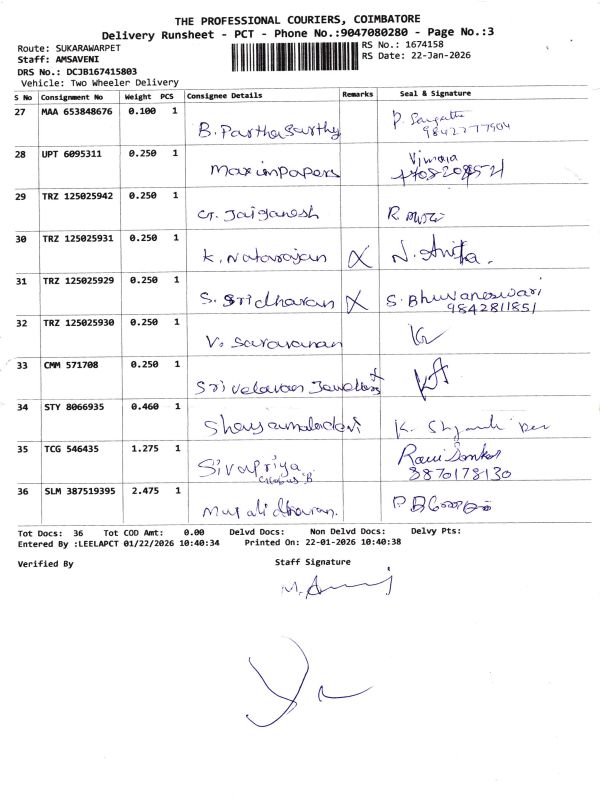 THE PROFESSIONAL COURIERS, COIMBATORE
Delivery Runsheet - PCT - Phone No.:9047080280 - Page No.:3
Route: SUKARAWARPET
RS No.: 1674158
Staff: AMSAVENI
RS Date: 22-Jan-2026
DRS No.: DCJB167415803
Vehicle: Two Wheeler Delivery
S No Consignment No Weight PCS Consignee Details Remarks Seal & Signature
27 MAA 653848676 0.100 1 B. Parthasarthy P.
9842277904
28 UPT 6095311 0.250 1 Maxim Papers
29 TRZ 125025942 0.250 1 G. Jaiganesh R.
30 TRZ 125025931 0.250 1 K. Natarajan X N. Anita.
31 TRZ 125025929 0.250 1 S. Sridharan X S. Bhuvaneswari
9842811851
32 TRZ 125025930 0.250 1 V. Saravanan
33 CMM 571708 0.250 1 Sri Velavan Jewellers X
34 STY 8066935 0.460 1 Shayamaladevi K.
35 TCG 546435 1.275 1 Sivapriya
8870178130
36 SLM 387519395 2.475 1 Muralidharan.
Tot Docs: 36 Tot COD Amt: 0.00 Delvd Docs: Non Delvd Docs: Delvy Pts:
Entered By :LEELAPCT 01/22/2026 10:40:34 Printed On: 22-01-2026 10:40:38
Verified By Staff Signature